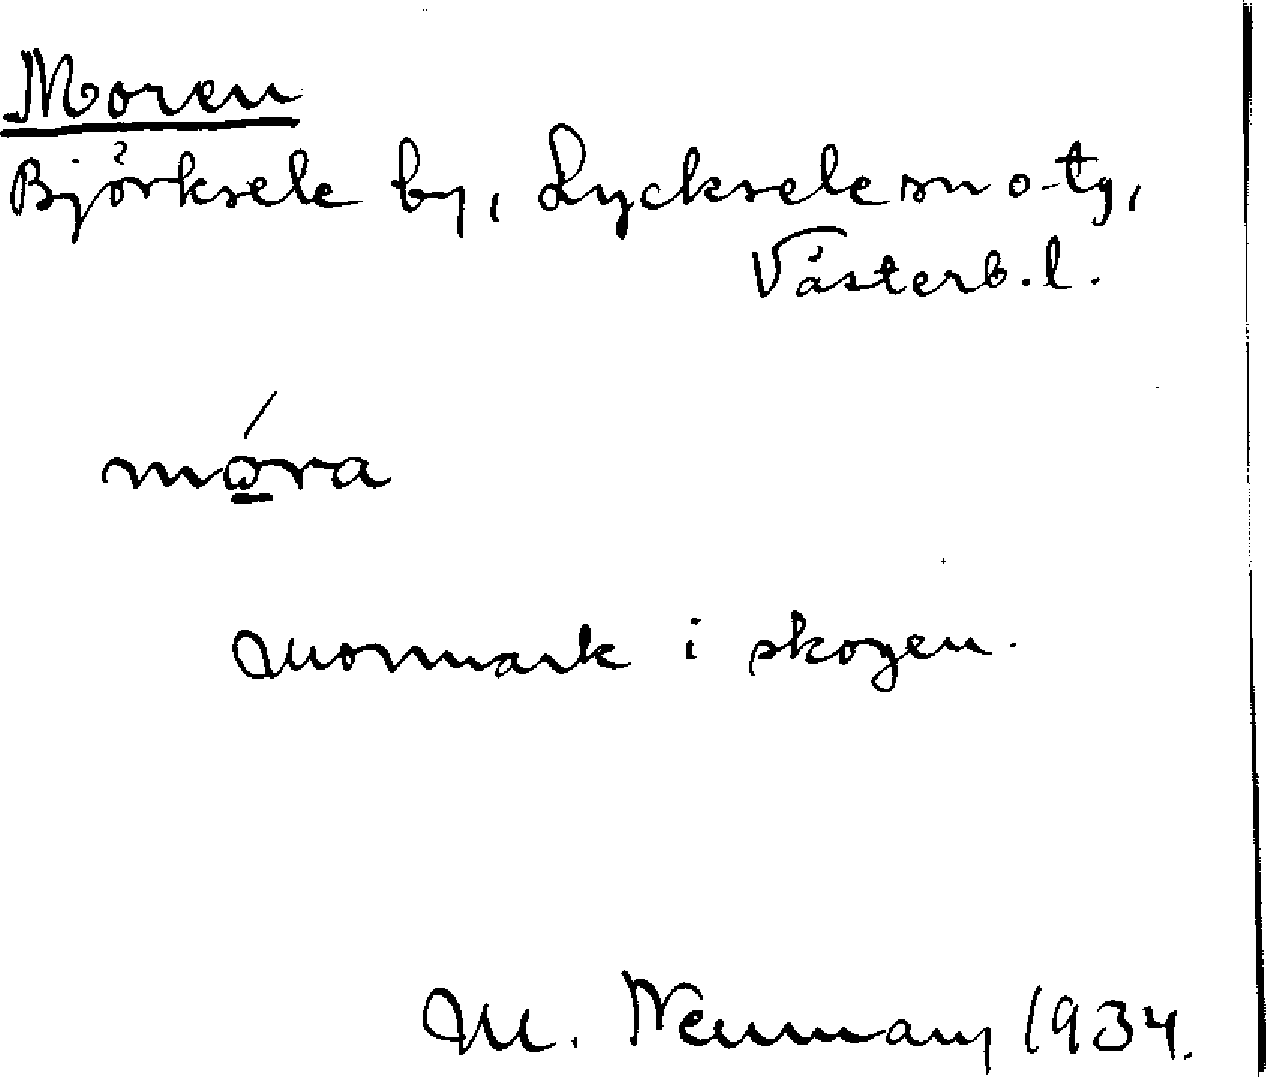 Moren
Björksele by, Lycksele sn o. tg,
Västerb. l.
mo̲ra
Mormark i skogen.
M. Neuman, 1934.